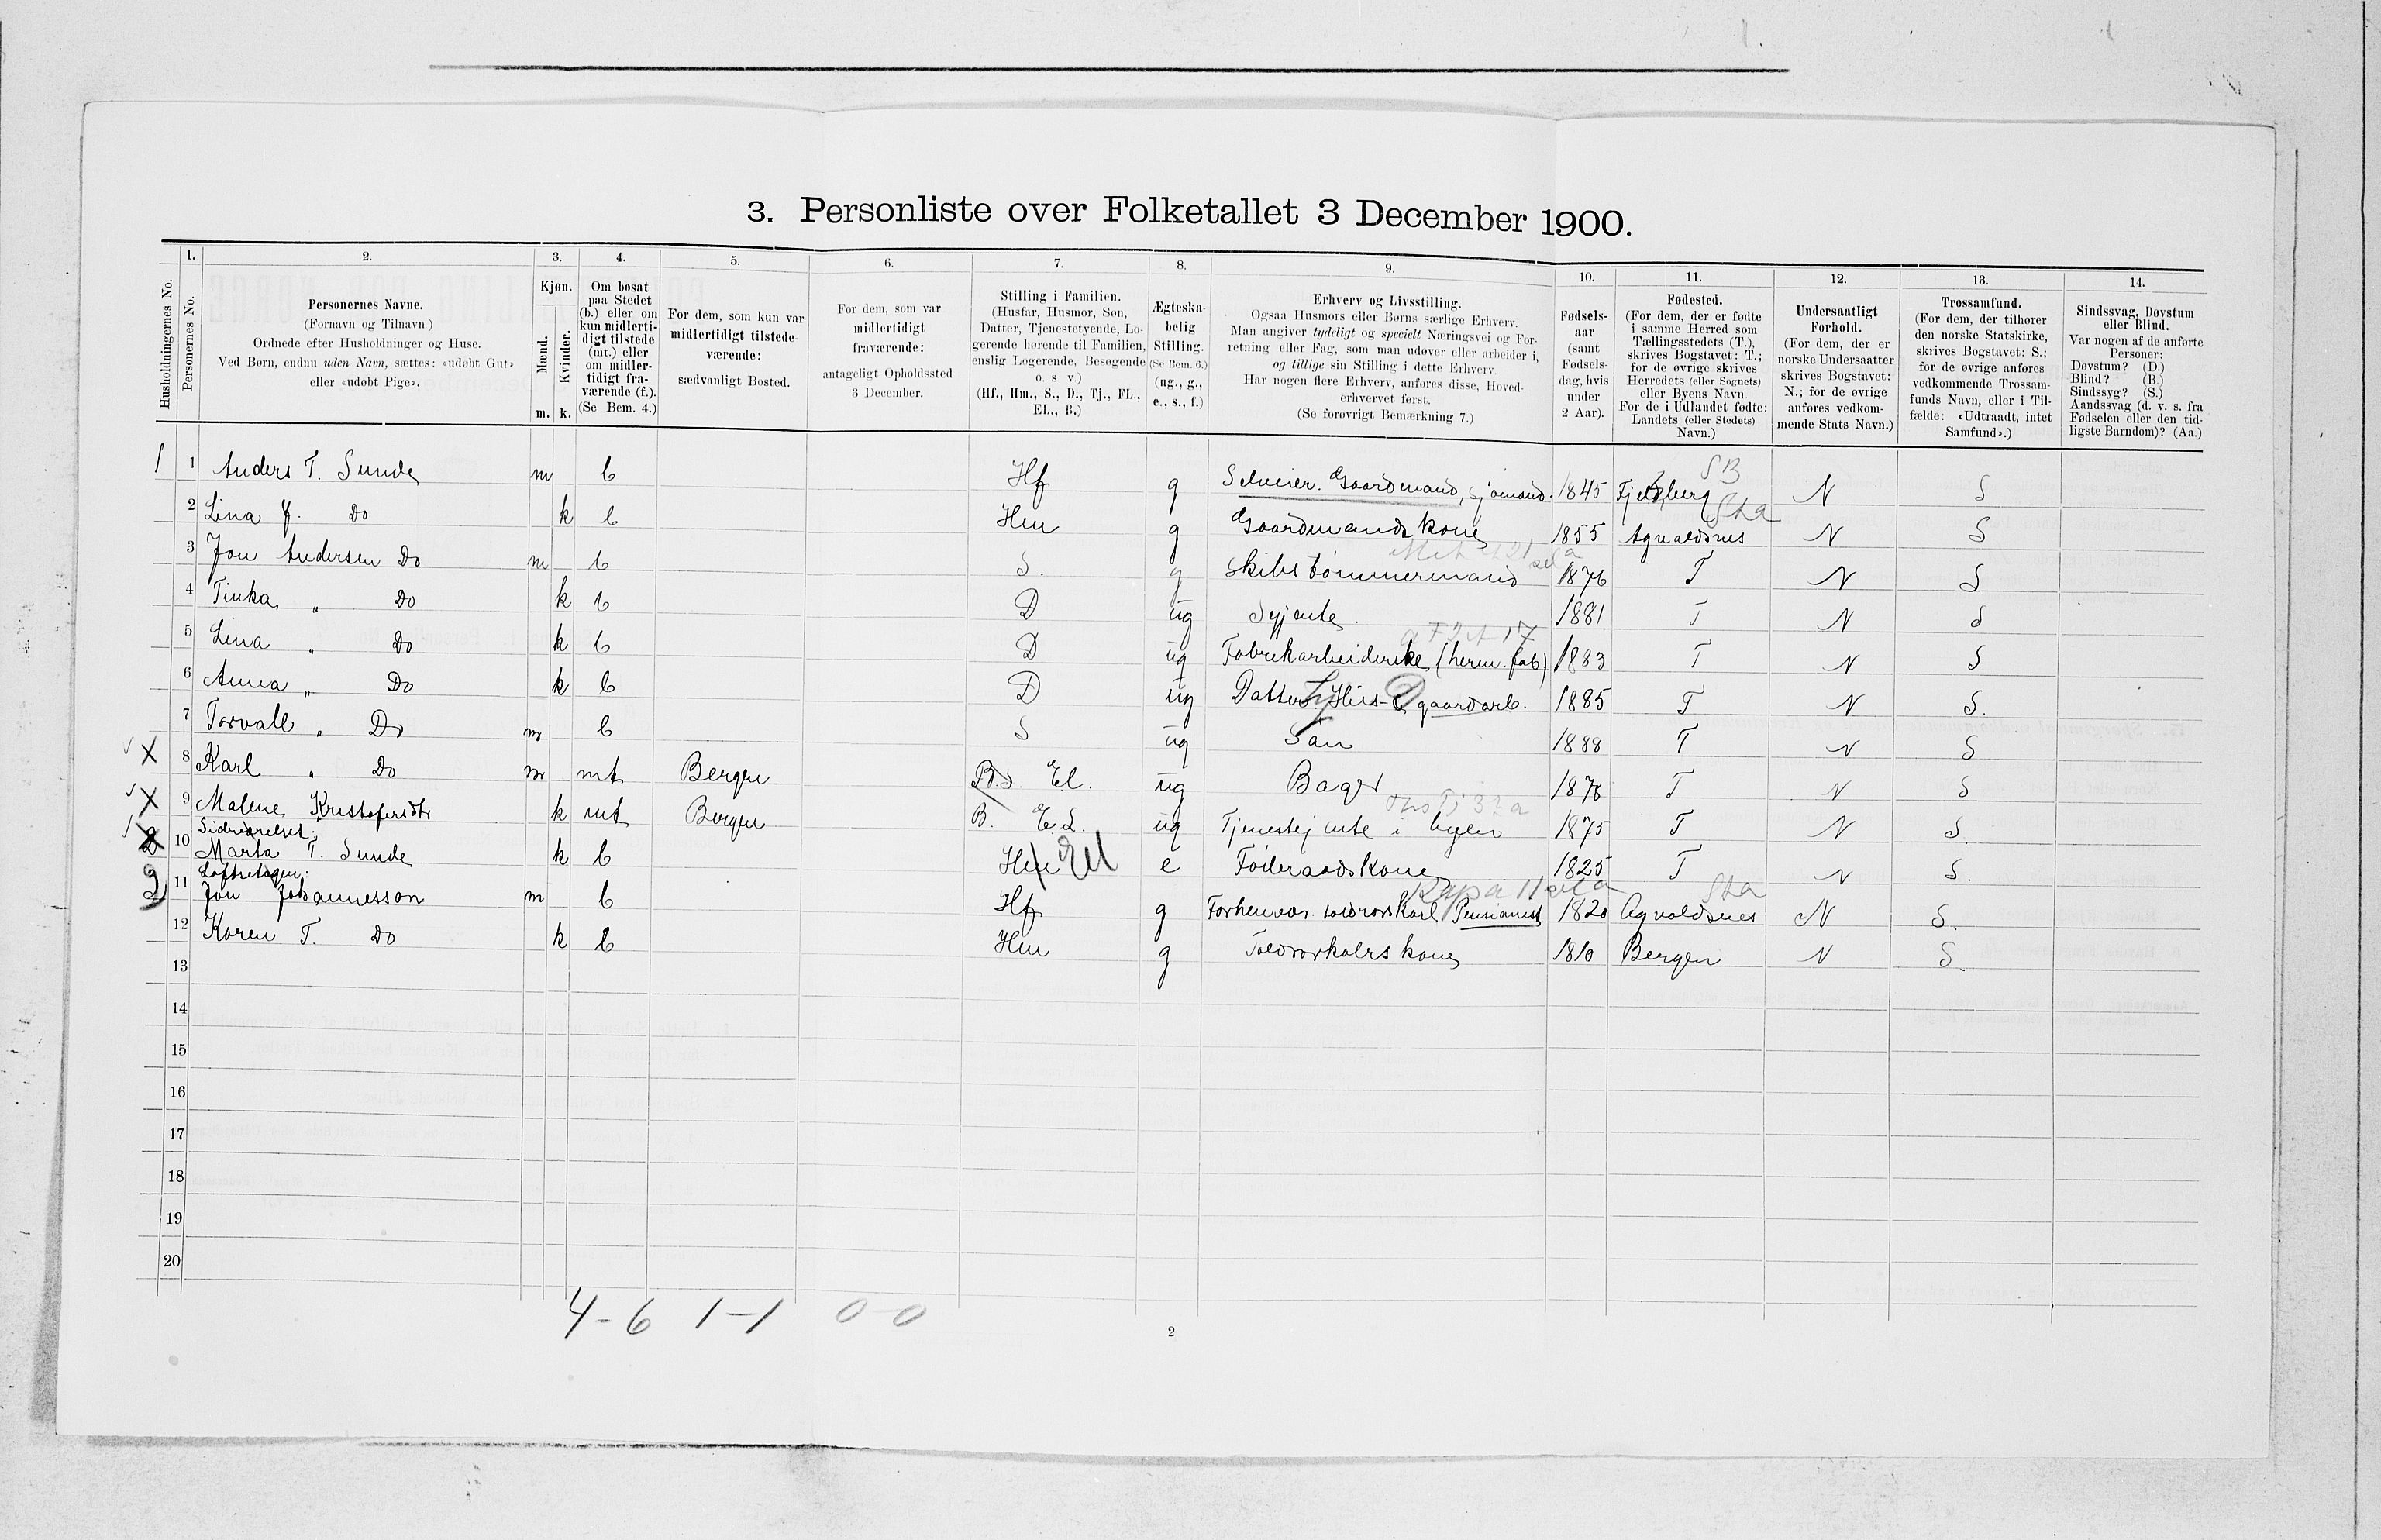 3. Personliste over Folketallet 3 December 1900.
Husholdningernes No.
1.
Personernes No.
2.
Personernes Navne.
(Fornavn og Tilnavn)
Ordnede efter Husholdninger og Huse.
Ved Børn, endnu uden Navn, sættes: «udøbt Gut»
eller «udøbt Pige».
3.
Kjøn.
Mænd.
Kvinder.
m. k.
4.
Om bosat
paa Stedet
(b.) eller om
kun midlerti-
digt tilstede
(mt.) eller
om midler-
tidigt fra-
værende (f.).
(Se Bem. 4.)
5.
For dem, som kun var
midlertidigt tilstede-
værende:
sædvanligt Bosted.
6.
For dem, som var
midlertidigt
fraværende:
antageligt Opholdssted
3 December.
7.
Stilling i Familien.
(Husfar, Husmor, Søn,
Datter, Tjenestetyende, Lo-
gerende hørende til Familien,
enslig Logerende, Besøgende
o. s v.)
(Hf., Hm., S., D., Tj., FL.,
EL., B.)
8.
Ægteska-
belig
Stilling.
(Se Bem. 6.)
(ug., g.,
e., s., f.)
9.
Erhverv og Livsstilling.
Ogsaa Husmors eller Børns særlige Erhverv.
Man angiver tydeligt og specielt Næringsvei og For-
retning eller Fag, som man udøver eller arbeider i,
og tillige sin Stilling i dette Erhverv.
Har nogen flere Erhverv, anføres disse, Hoved-
erhvervet først.
(Se forøvrigt Bemærkning 7.)
10.
Fødsels-
aar
(samt
Fødsels-
dag, hvis
under
2 Aar).
11.
Fødested.
(For dem, der er fødte
i samme Herred som
Tællingsstedets (T.),
skrives Bogstavet: T.;
for de øvrige skrives
Herredets (eller Sognets)
eller Byens Navn.
For de i Udlandet fødte:
Landets (eller Stedets)
Navn.)
12.
Undersaatligt
Forhold.
(For dem, der er
norske Undersaatter
skrives Bogstavet:
N.; for de øvrige
anføres vedkom-
mende Stats Navn.)
13.
Trossamfund.
(For dem, der tilhører
den norske Statskirke,
skrives Bogstavet: S.;
for de øvrige anføres
vedkommende Trossam-
funds Navn, eller i Til-
fælde: «Udtraadt, intet
Samfund».)
14.
Sindssvag, Døvstum
eller Blind.
Var nogen af de anførte
Personer:
Døvstum? (D.)
Blind? (B.)
Sindssyg? (S.)
Aandssvag (d. v. s. fra
Fødselen eller den tid-
ligste Barndom)? (Aa.)
SB
1 1 Anders T. Sunde m b Hf g Selveier. Gaardmand, sjømand. 1845 Fjelberg N S
Sta
2 Lina J. Do k b Hm g Gaardmands kone 1855 Agvaldsnes N S
3 Jon Andersen Do m b S. g Skibstømmermand 1876 T N S
4 Tinka " Do k b D ug Syjente. 1881 T N S
5 Lina " Do k b D ug Fabrikarbeiderske (herm. fab) 1883 T N S
6 Anna " Do k b D ug Datter. Hus- & gaardarb. 1885 T N S.
7 Torvall " Do m b S ug Søn 1888 T N S
X 8 Karl " Do m mt Bergen B. S. El. ug Bager 1878 T N S
X 9 Malene Kristofersdtr k mt Bergen B. E.L. ug Tjenestejente i byen 1875 T N S.
Sideværelset:
2 10 Marta T. Sunde k b Hm El e Føderaadskone 1825 T N S.
Loftsetagen:
Sta
3 11 Jon Johannesson m b Hf g Forhenvær. toldrorskarl Pensionist 1820 Agvaldsnes N S.
12 Karen T. Do k b Hm g Toldrorkalrs kone 1810 Bergen N S.
13
14
15
16
17
18
19
20
4-6 1-1 0-0
2